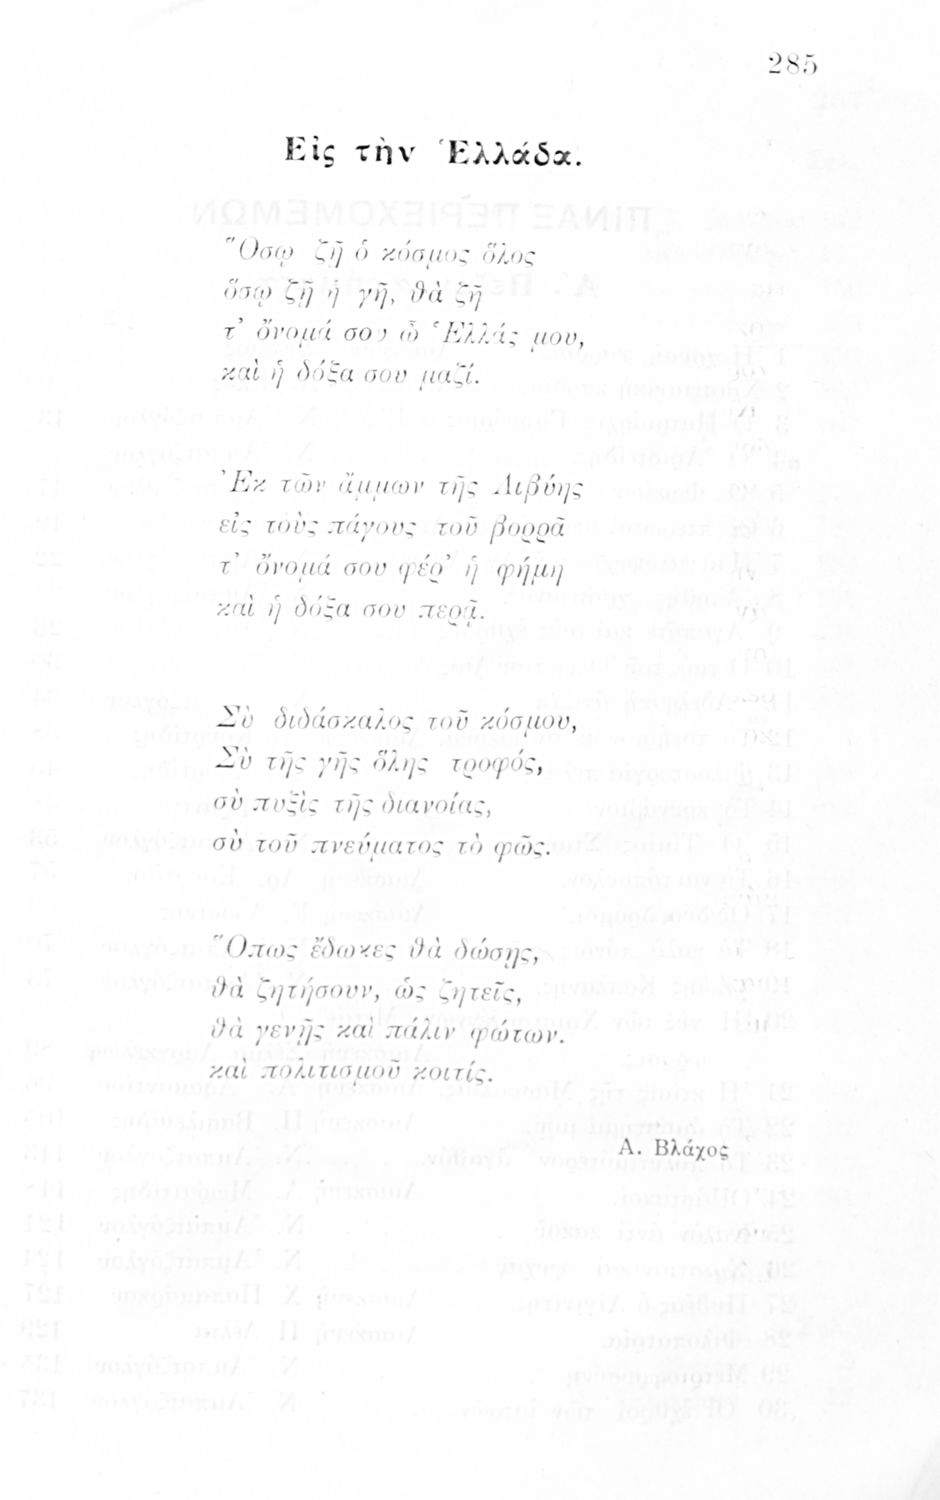 285
Εἰς τὴν Ἑλλάδα.
Ὅσῳ ζῇ ὁ κόσμος ὅλος
ὅσῳ ζῇ ἡ γῆ, θὰ ζῇ
τ' ὄνομά σου ὦ Ἑλλάς μου,
καὶ ἡ δόξα σου μαζί.
Ἐκ τῶν ἄμμων τῆς Λιβύης
εἰς τοὺς πάγους τοῦ βορρᾶ
τ' ὄνομά σου φέρ' ἡ φήμη
καὶ ἡ δόξα σου περᾷ.
Σὺ διδάσκαλος τοῦ κόσμου,
Σὺ τῆς γῆς ὅλης τροφός,
σὺ πυξὶς τῆς διανοίας,
σὺ τοῦ πνεύματος τὸ φῶς.
Ὅπως ἔδωκες θὰ δώσῃς,
θὰ ζητήσουν, ὡς ζητεῖς,
θὰ γενῇς καὶ πάλιν φώτων.
καὶ πολιτισμοῦ κοιτίς.
Α. Βλάχος